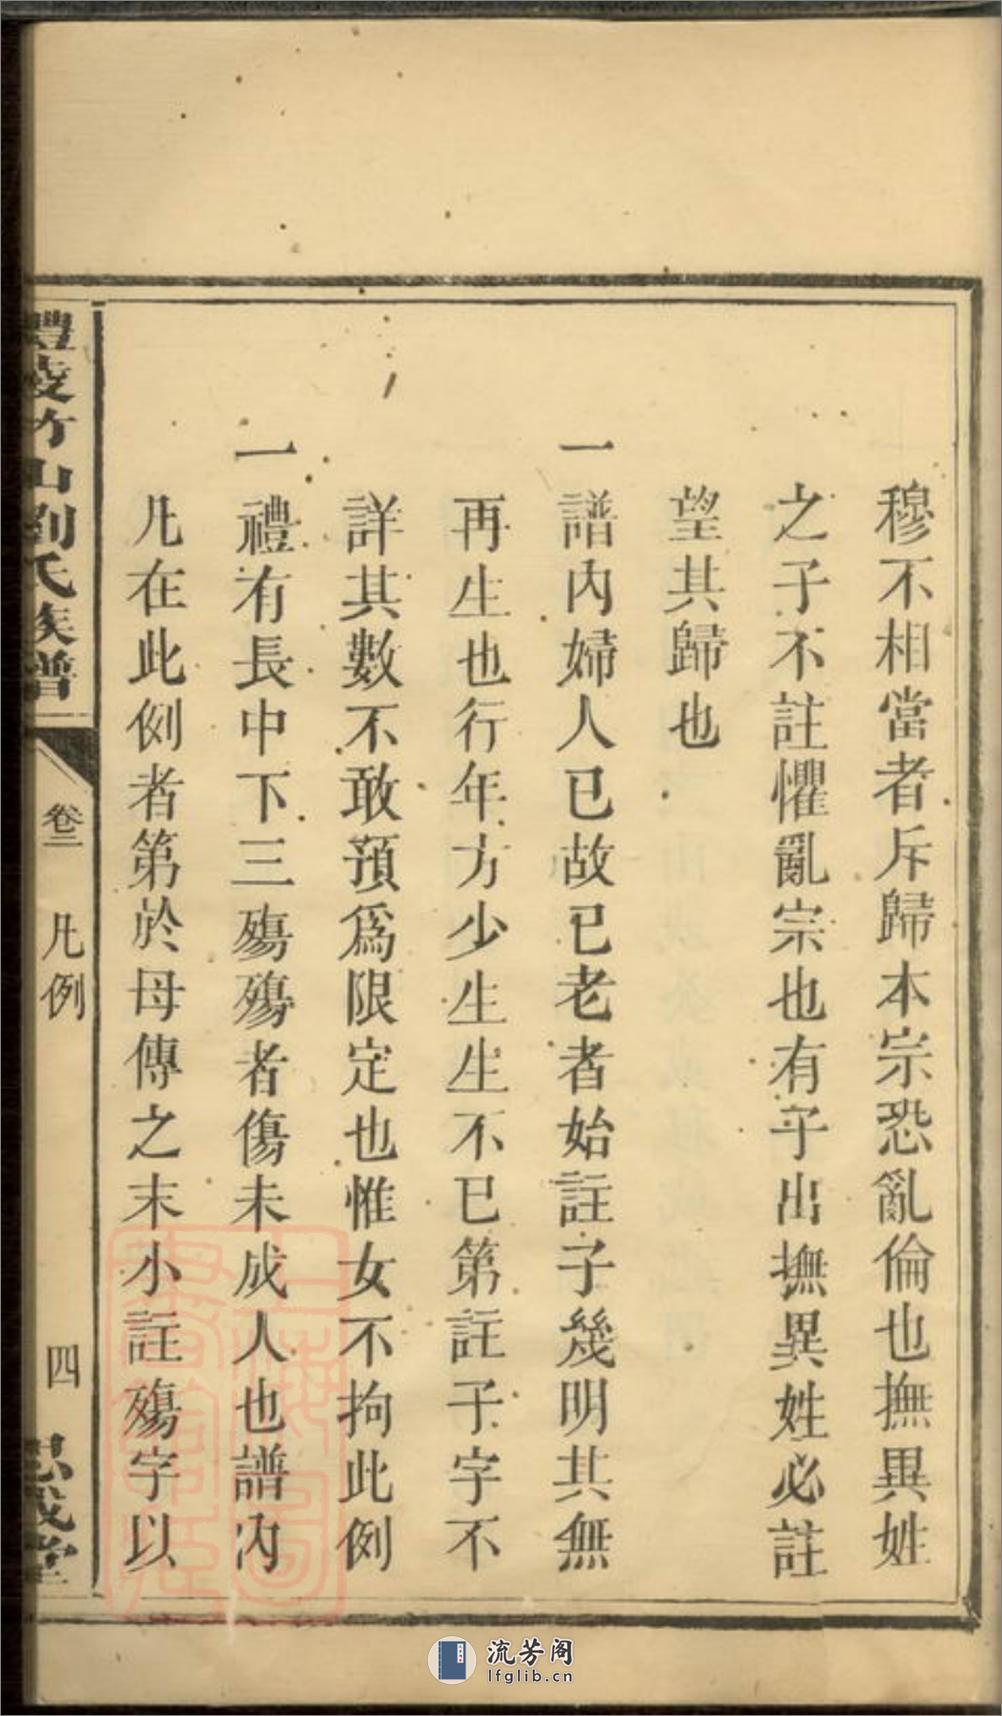 穆不相當者斥歸本宗恐亂倫也撫異姓
之子不註懼亂宗也有子出撫異姓必註
望其歸也
一譜內婦人已故已老者始註子幾明其無
再生也行年方少生生不已第註子字不
詳其數不敢預爲限定也惟女不拘此例
一禮有長中下三殤殤者傷未成人也譜內
凡在此例者第於母傳之末小註殤字以
醴陵竹山劉氏族譜
卷二
凡例
四
忠茂堂
流芳阁
lfglib.cn